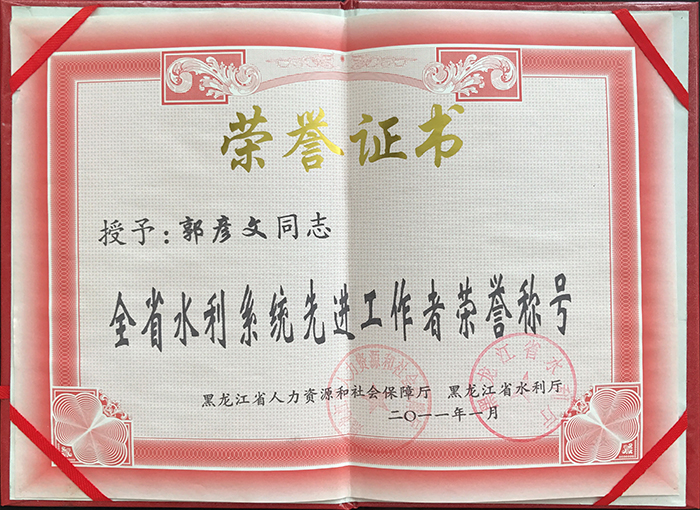 荣誉证书
授予：郭彦文同志
全省水利系统先进工作者荣誉称号
黑龙江省人力资源和社会保障厅 黑龙江省水利厅
二〇一一年一月